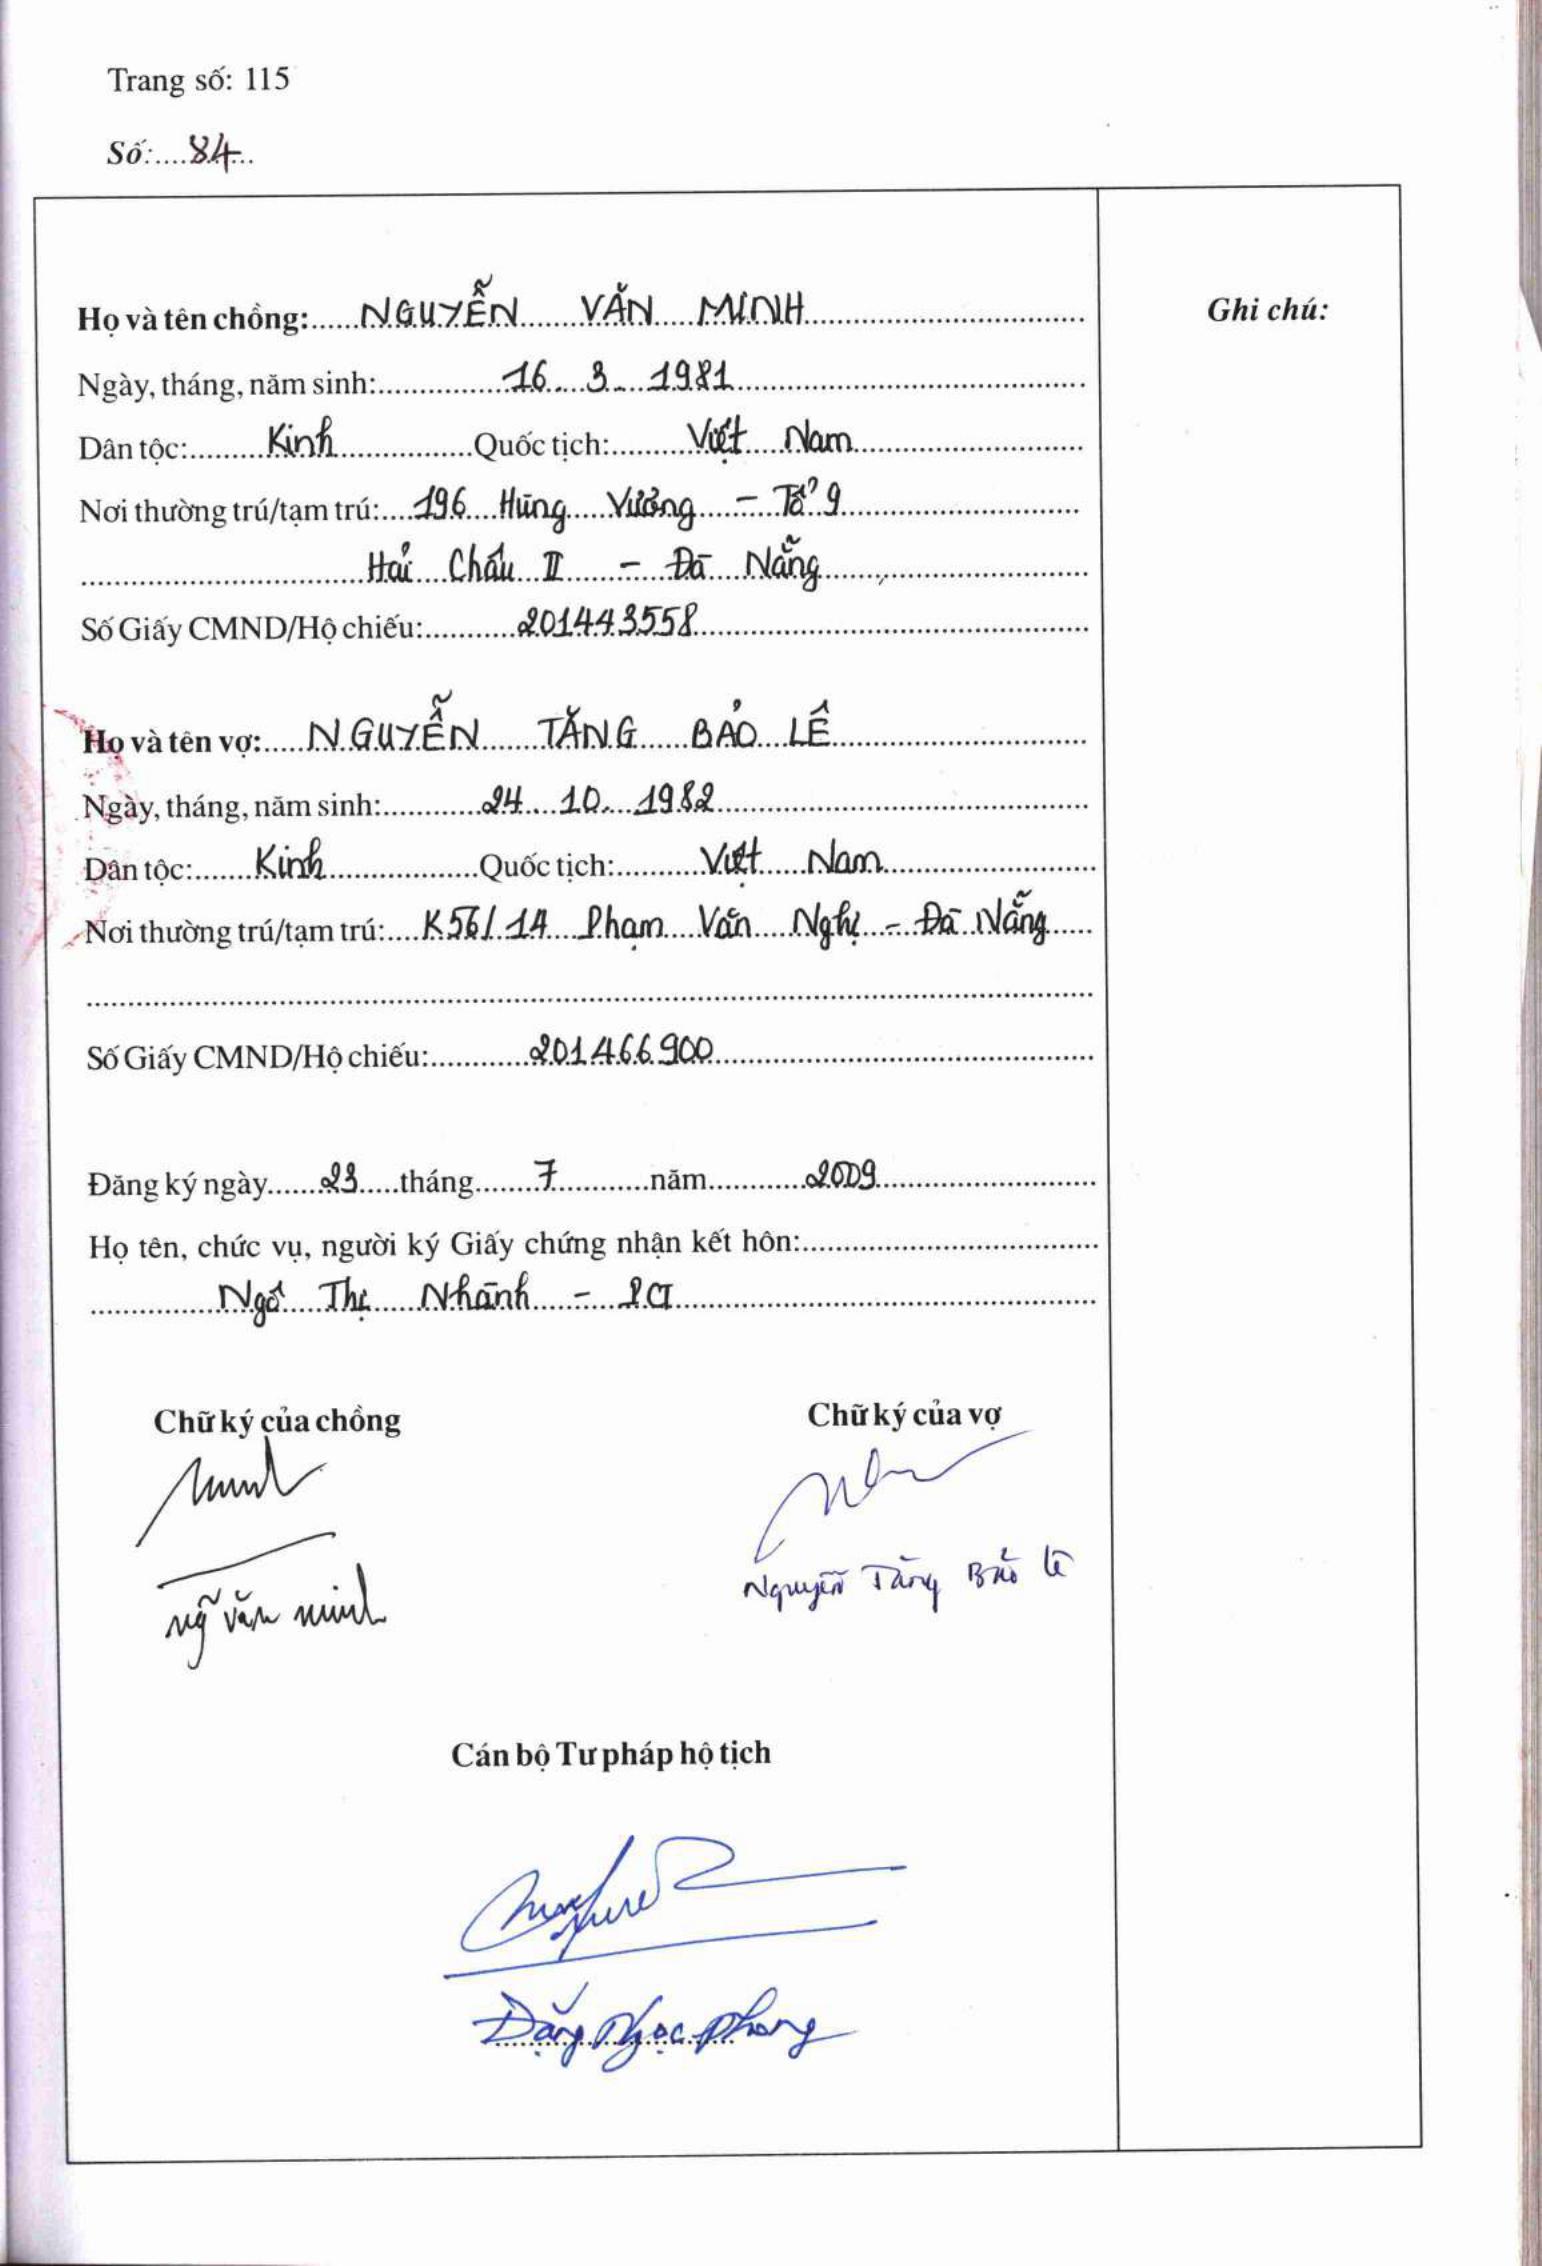 Trang số: 115
Số:....84...
Ghi chú:
Họ và tên chồng: NGUYỄN VĂN MINH
Ngày, tháng, năm sinh: 16 3 1981
Dân tộc: Kinh Quốc tịch: Việt Nam
Nơi thường trú/tạm trú: 196 Hùng Vương - Tổ 9
Hải Châu II - Đà Nẵng
Số Giấy CMND/Hộ chiếu: 201443558
Họ và tên vợ: NGUYỄN TĂNG BẢO LÊ
Ngày, tháng, năm sinh: 24 10 1982
Dân tộc: Kinh Quốc tịch: Việt Nam
Nơi thường trú/tạm trú: K56/14 Phạm Văn Nghị - Đà Nẵng
Số Giấy CMND/Hộ chiếu: 201466900
Đăng ký ngày 23 tháng 7 năm 2009
Họ tên, chức vụ, người ký Giấy chứng nhận kết hôn:
Ngô Thị Nhành - PCT
Chữ ký của chồng Chữ ký của vợ
Ng̃ Văn Minh
Nguyễn Tăng Bảo Lê
Cán bộ Tư pháp hộ tịch
Đặng Ngọc Phong